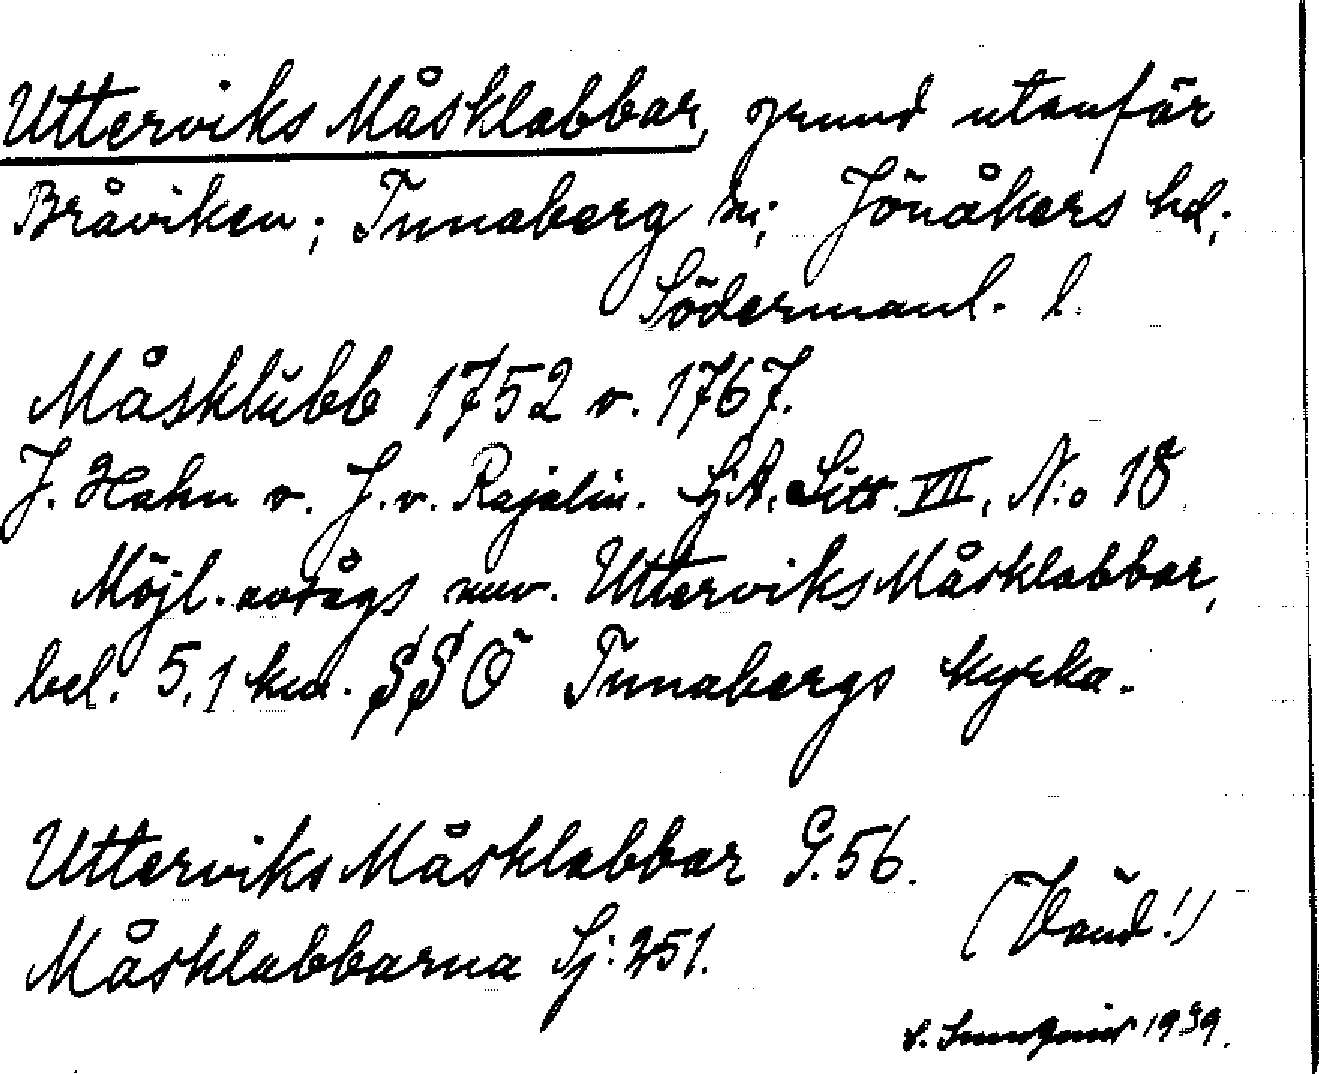 Utterviks Måsklabbar, grund utanför
Bråviken; Tunaberg sn; Jönåkers hd;
Södermanl. l.
Måsklubb 1752 o. 1767.
J. Hahn o. J. v. Rajalin. SjA. Litt. VII, N:o 18
Möjl. avsågs nuv. Utterviks Måsklabbar,
bel. 5,1 km. SSÖ Tunabergs kyrka.
Utterviks Måsklabbar G. 56.
Måsklabbarna Sj: 251.
(Vänd!)
1939.